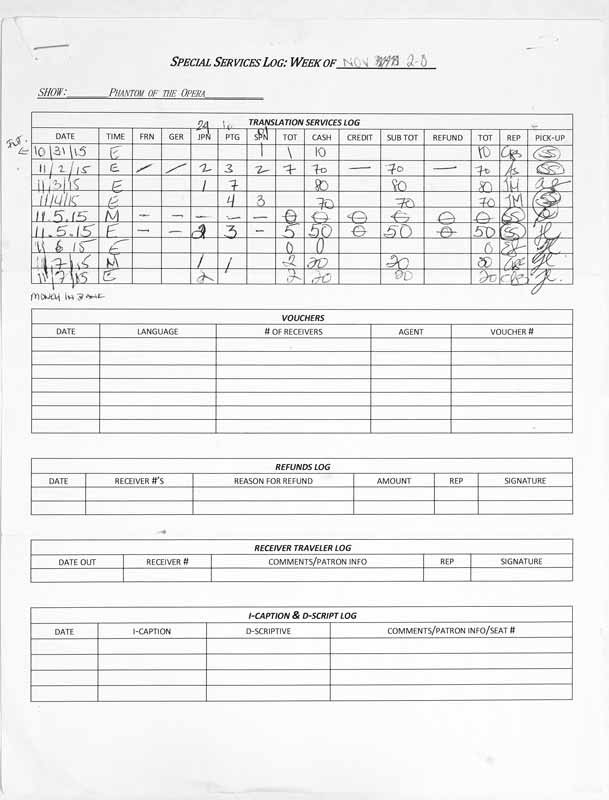 SPECIAL SERVICES LOG: WEEK OF NOV 2-8
SHOW: PHANTOM OF THE OPERA
TRANSLATION SERVICES LOG
DATE TIME FRN GER JPN PTG SPN TOT CASH CREDIT SUB TOT REFUND TOT REP PICK-UP
10/31/15 E 1 1 10 10
11/2/15 E / / 2 3 2 7 70 — 70 — 70
11/3/15 E 1 7 80 80 80 JM
11/4/15 E 4 3 70 70 70 JM
11.5.15 M - - - - - 0 0 0 0 0 0 SS
11.5.15 E - - 2 3 - 5 50 0 50 0 50 SS
11 6 15 E 0 0 0
11/7/15 M 1 1 2 20 20 20
11/7/15 E 2 2 20 20 20
MONEY IN BANK
VOUCHERS
DATE LANGUAGE # OF RECEIVERS AGENT VOUCHER #
REFUNDS LOG
DATE RECEIVER #'S REASON FOR REFUND AMOUNT REP SIGNATURE
RECEIVER TRAVELER LOG
DATE OUT RECEIVER # COMMENTS/PATRON INFO REP SIGNATURE
I-CAPTION & D-SCRIPT LOG
DATE I-CAPTION D-SCRIPTIVE COMMENTS/PATRON INFO/SEAT #